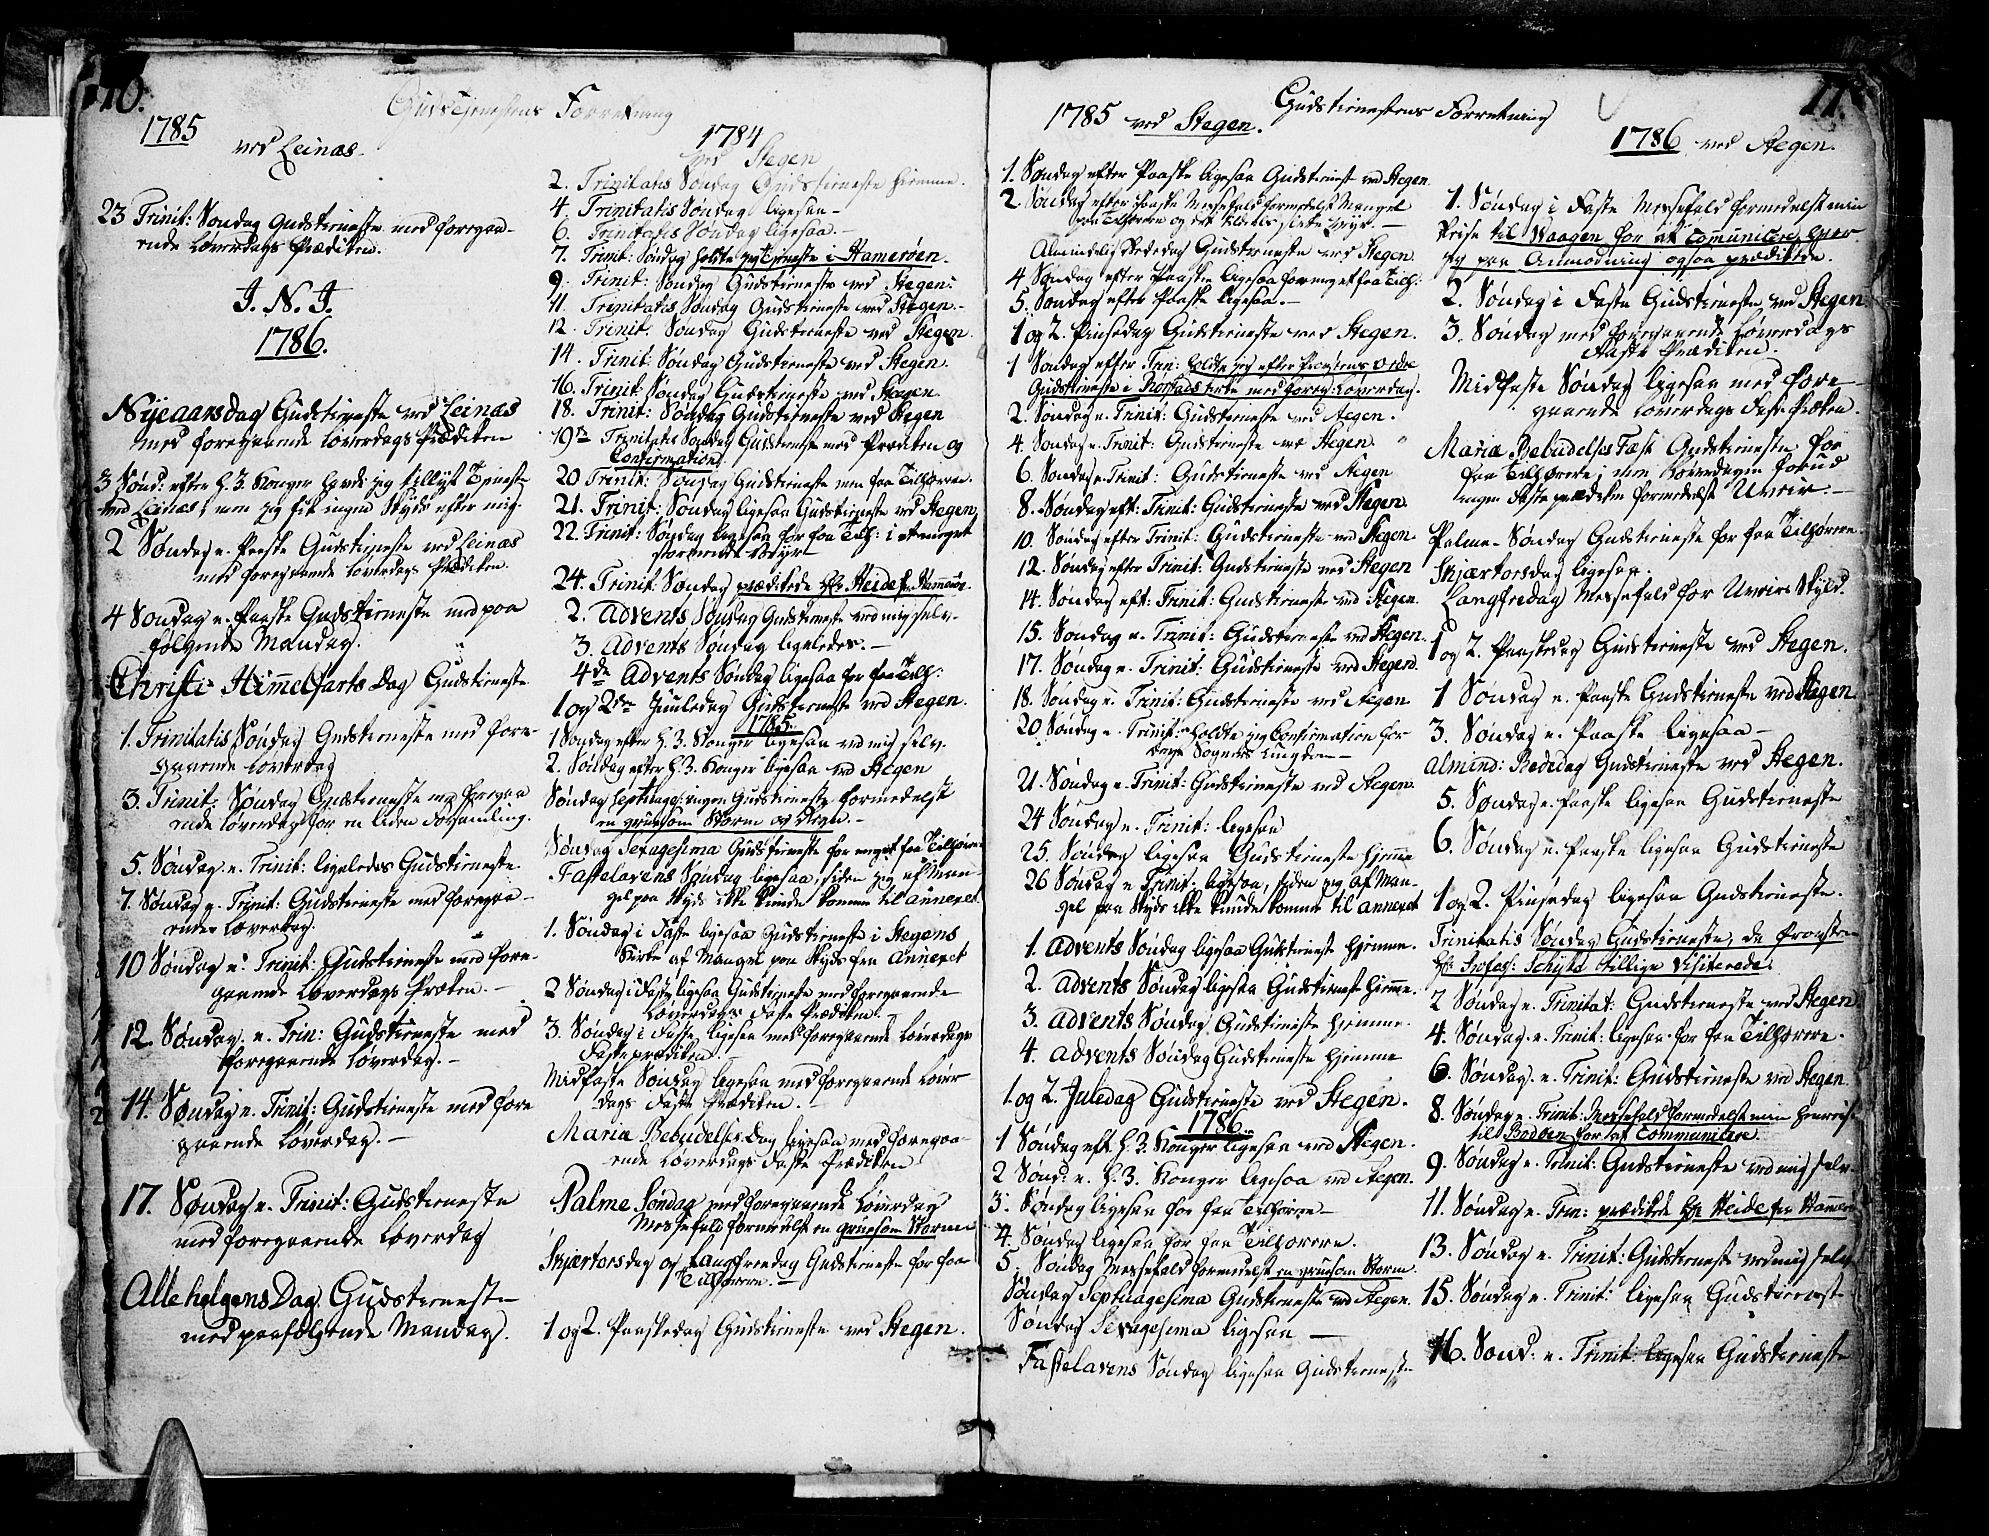 10.
Gudstienestens Forretning
1785
ved Leinæs.
23 Trinit: Søndag Gudstieneste med foregaa-
ende Løverdags Prædiken.
J. N. J.
1786.
Nyeaarsdag Gudstieneste ved Leinæs
med foregaaende Løverdags Prædiken
3 Sønd: efter H. 3. Konger havde jeg tillyst Tieneste
ved Leinæs, men jeg fik ingen Skyds efter mig.
2 Søndag e. Paaske Gudstieneste ved Leinæs
med foregaaende Løverdags Prædiken.
4 Søndag e. Paaske Gudstieneste med paa
følgende Mandag.
Christi Himmelfarts Dag Gudstieneste
1. Trinitatis Søndag Gudstieneste med fore-
gaaende Løverdag
3. Trinit: Søndag Gudstieneste med foregaa
ende Løverdag for en liden Forsamling.
5. Søndag e. Trinit: ligeledes Gudstieneste.
7. Søndag e. Trinit: Gudstieneste med foregaa-
ende Løverdag.
10 Søndag e. Trinit: Gudstieneste med fore-
gaaende Løverdags Præken. -
12. Søndag. e. Trin: Gudstieneste med
foregaaende Løverdag. -
14. Søndag e. Trinit: Gudstieneste med fore
gaaende Løverdag. -
17. Søndag e. Trinit: Gudstieneste
med foregaaende Løverdag
Alle helgens Dag Gudstieneste
med paafølgende Mandag.
1784
ved Stegen
2. Trinitatis Søndag Gudstieneste hiemme.
4. Trinitatis Søndag ligesaa -
6. Trinitatis Søndag ligesaa. -
7. Trinit: Søndag holdte jeg Tjeneste i Hamerøen.
9. Trinit: Søndag Gudstieneste ved Stegen:
11. Trinitatis Søndag Gudstieneste ved Stegen.
12. Trinit. Søndag Gudstieneste ved Stegen.
14. Trinit. Søndag Gudstieneste ved Stegen.
16. Trinit. Søndag Gudstieneste ved Stegen.
18. Trinit: Søndag Gudstieneste ved Stegen
19de Trinitatis Søndag Gudstieneste med Præken og
Confirmation.
20 Trinit: Søndag Gudstieneste men faa Tilhørere.
21. Trinit: Søndag ligesaa Gudstieneste ved Stegen.
22. Trinit: Søndag ligesaa for faa Tilh: i et meget
stormende Veyr
24. Trinit. Søndag prædikede Hr. Heide fra Hamerøe.
2. Advents Søndag Gudstieneste ved mig selv.
3. Advents Søndag ligeledes. -
4de Advents Søndag ligesaa for faa Tilh:
1 og 2den Juuledag Gudstieneste ved Stegen.
1785.
1 Søndag efter H. 3. Konger ligesaa ved mig selv.
2. Søndag efter H. 3. Konger ligesaa ved Stegen
Søndag Septuages: ingen Gudstieneste formedelst
en gruesom Storm og Regn. -
Søndag Sexagesima Gudstieneste for meget faa Tilhørere
Fastelavens Søndag ligesaa, siden jeg af Man-
gel paa Skyds ikke kunde komme til Annexet.
1. Søndag i Faste ligesaa Gudstieneste i Stegens
Kirke af Mangel paa Skyds fra Annexet
2 Søndag i Faste ligesaa Gudstieneste med foregaaende
Løverdags Faste Prædiken. -
3. Søndag i Faste ligesaa med foregaaende Løverdags
Faste prædiken.
Midfaste Søndag ligesaa med foregaaende Løver
dags Faste Prædiken. -
Maria Bebudelses Dag ligesaa med foregaa-
ende Løverdags Faste Prædiken
Palme Søndag med foregaaende Løverdag
Messefald formedelst en gruesom Storm
Skjærtorsdag og Langfreedag Gudstieneste for faa
Tilhørere. -
1 og 2. Paaskedag Gudstieneste ved Stegen.
11.
Gudstienestens Forretning
1785 ved Stegen.
1. Søndag efter Paaske ligesaa Gudstienest ved Stegen.
2 Søndag efter Paaske Messefald formedelst Mangel
paa Tilhørere og det slette Veyr. -
Almindelig Bededag Gudstieneste ved Stegen.
4 Søndag efter Paaske ligesaa for meget faa Tilh:
5. Søndag efter Paaske ligesaa. -
1 og 2. Pinsedag Gudstieneste ved Stegen.
1 Søndag efter Trin: holdte jeg efter Provstens Ordre
Gudstieneste i Kirke med foreg: Løverdag.
2. Søndag e. Trinit: Gudstieneste ved Stegen.
4. Søndag e. Trinit: Gudstieneste ved Stegen.
6. Søndag e. Trinit: Gudstieneste ved Stegen
8. Søndag eft: Trinit: Gudstieneste ved Stegen.
10. Søndag efter Trinit: Gudstieneste ved Stegen.
12. Søndag efter Trinit: Gudstieneste ved Stegen
14. Søndag eft. Trinit: Gudstieneste ved Stegen.
15. Søndag e. Trinit: Gudstieneste ved Stegen.
17. Søndag e. Trinit: Gudstieneste ved Stegen.
18. Søndag e. Trinit: Gudstieneste ved Stegen
20 Søndag e. Trinit: holdte jeg Confirmation for
Sognets Ungdom -
21. Søndag e. Trinit: Gudstieneste ved Stegen.
24 Søndag e. Trinit: ligesaa
25. Søndag ligesaa Gudstieneste hjemme
26 Søndag e Trinit: ligesaa, siden jeg af Man-
gel paa Skyds ikke kunde komme til Annexet
1. Advents Søndag ligesaa Gudstieneste hjemme.
2. Advents Søndag ligesaa Gudstieneste hjemme.
3. Advents Søndag Gudstieneste hjemme.
4. Advents Søndag Gudstieneste hjemme
1. og 2. Juledag Gudstieneste ved Stegen.
1786.
1 Søndag eft H. 3. Konger ligesaa ved Stegen.
2 Sønd: e. H. 3. Konger ligesaa ved Stegen.
3. Søndag ligesaa for faa Tilhørere -
4. Søndag ligesaa for faa Tilhørere.
5. Søndag Messefald formedelst en gruesom Storm.
Søndag Septuagesima Gudstieneste ved Stegen.
Søndag Sexagesima ligesaa -
Fastelavens Søndag ligesaa Gudstieneste
1786 ved Stegen.
1. Søndag i Faste Messefald formedelst min
Reise til Vaagen for at Communicere, hvor
jeg paa Anmodning ogsaa prædikede.
2. Søndag i Faste Gudstieneste ved Stegen
3. Søndag med foregaaende Løverdags
Faste Prædiken
Midfaste Søndag ligesaa med fore-
gaaende Løverdags Faste Præken.
Maria Bebudelses Fæst Gudstieneste for
faa Tilhørere; den Løverdagen forud
ingen Faste prædiken formedelst Uveir. -
Palme-Søndag Gudstieneste for faa Tilhørere
Skjærtorsdag ligesaa.
Langfredag Messefald for Uveirs Skyld.
1 og 2. Paaskedag Gudstieneste ved Stegen.
1 Søndag e. Paaske Gudstieneste ved Stegen
3. Søndag e. Paaske ligesaa -
Almind: Bededag Gudstieneste ved Stegen.
5. Søndag e. Paaske ligesaa Gudstieneste
6. Søndag e. Paaske ligesaa Gudstieneste
1 og 2. Pinsedag ligesaa Gudstieneste.
Trinitatis Søndag Gudstieneste, da Provsten
Hr. Schytte tillige visiterede.
2 Søndag e. Trinitat: Gudstieneste ved Stegen
4. Søndag. e. Trinit: ligesaa for faa Tilhørere.
6. Søndag. e. Trinit: Gudstieneste ved Stegen.
8. Søndag e. Trinit: Messefald formedelst min Henreise
til Bodøen for at Communicere.
9. Søndag e. Trinit: Gudstieneste ved mig selv
11. Søndag e. Trin: prædikede Hr. Heide fra Hammer
13. Søndag e. Trinit: Gudstieneste ved mig selv
15. Søndag e. Trinit: ligesaa Gudstieneste
16. Sønd: e. Trinit: ligesaa Gudstieneste